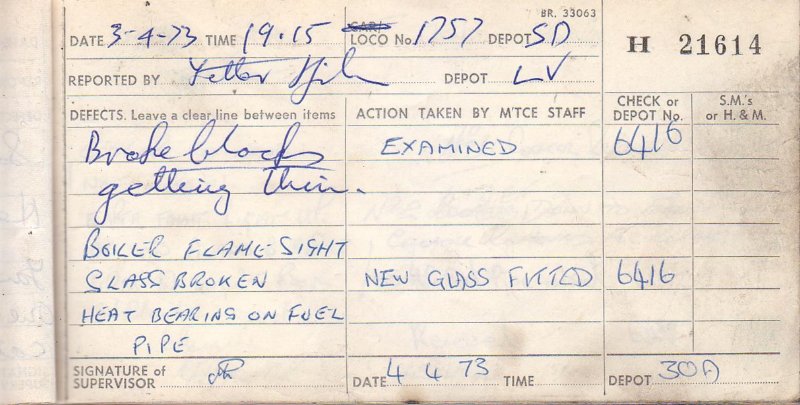 BR. 33063
DATE 3-4-73 TIME 19.15 CAR/ LOCO No. 1757 DEPOT SD
H 21614
REPORTED BY DEPOT LV
DEFECTS. Leave a clear line between items ACTION TAKEN BY M'TCE STAFF CHECK or DEPOT No. S.M.'s or H. & M.
Brake blocks EXAMINED 6416
getting thin.
BOILER FLAME SIGHT
GLASS BROKEN NEW GLASS FITTED 6416
HEAT BEARING ON FUEL
PIPE
SIGNATURE of SUPERVISOR DATE 4 4 73 TIME DEPOT 30A